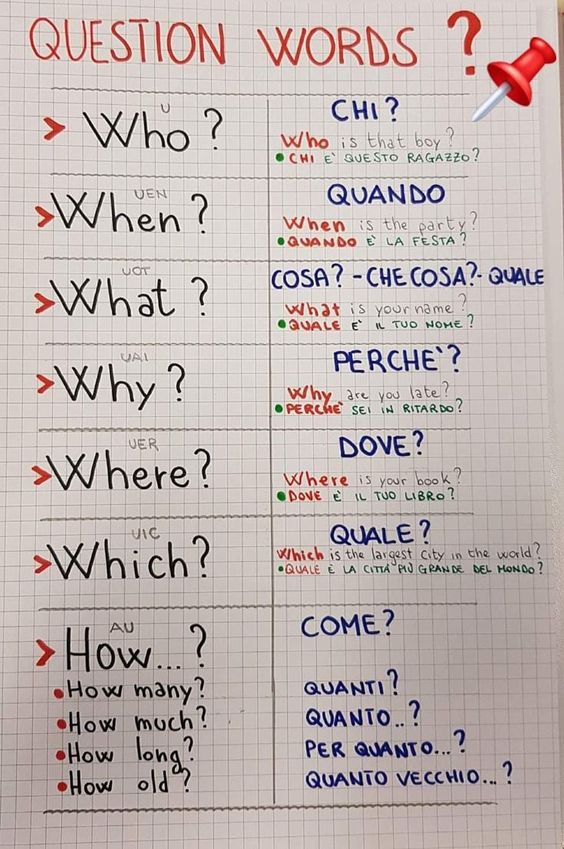 QUESTION WORDS ?
U
> Who ?
CHI ?
Who is that boy ?
• CHI E' QUESTO RAGAZZO ?
UEN
> When ?
QUANDO
When is the party ?
• QUANDO È LA FESTA ?
UOT
> What ?
COSA ? - CHE COSA ? - QUALE
What is your name ?
• QUALE E' IL TUO NOME ?
UAI
> Why ?
PERCHE' ?
Why are you late ?
• PERCHE' SEI IN RITARDO ?
UER
> Where ?
DOVE ?
Where is your book ?
• DOVE E' IL TUO LIBRO ?
UIC
> Which ?
QUALE ?
Which is the largest city in the world ?
• QUALE È LA CITTÀ PIÙ GRANDE DEL MONDO ?
AU
> How ... ?
COME ?
• How many ?
QUANTI ?
• How much ?
QUANTO .. ?
• How long ?
PER QUANTO ... ?
• How old ?
QUANTO VECCHIO ... ?